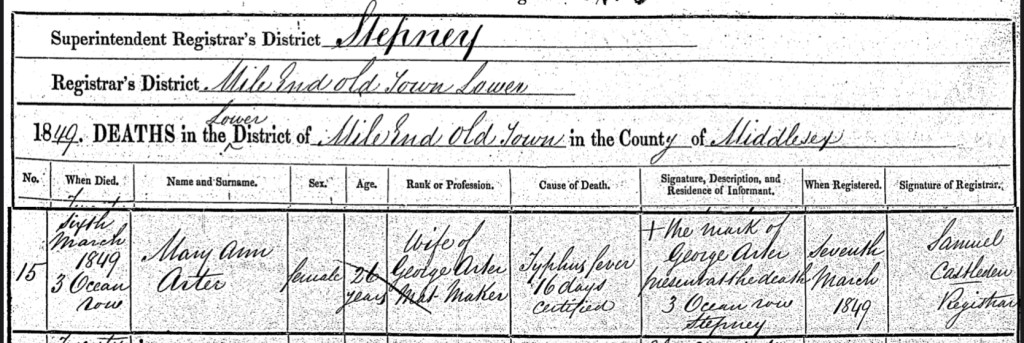 Superintendent Registrar's District Stepney
Registrar's District Mile End Old Town Lower
Lower
1849. DEATHS in the District of Mile End Old Town in the County of Middlesex
No. When Died. Name and Surname. Sex. Age. Rank or Profession. Cause of Death. Signature, Description, and Residence of Informant. When Registered. Signature of Registrar.
15
Sixth
March
1849
3 Ocean
row
Mary Ann
Arter
female
26
years
Wife of
George Arter
Mat Maker
Typhus fever
16 days
certified
+ the mark of
George Arter
present at the death
3 Ocean row
Stepney
Seventh
March
1849
Samuel
Castleden
Registrar